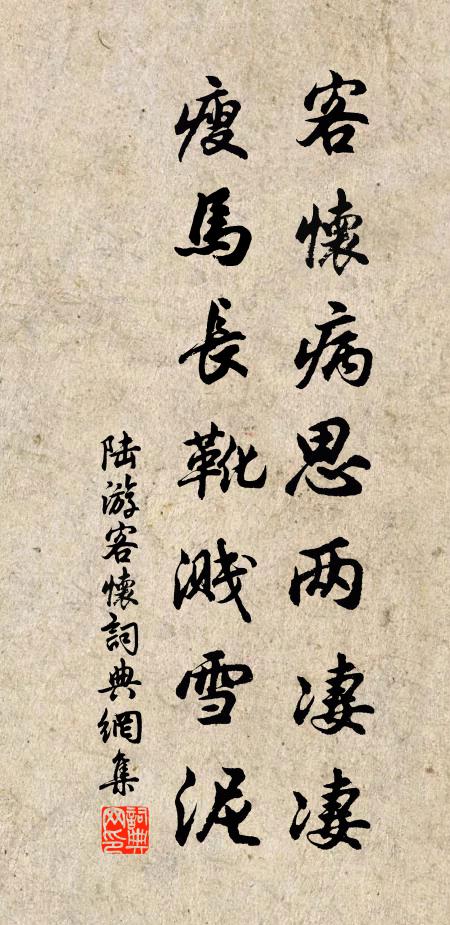 客懷病思两凄凄
瘦馬長靴濺雪泥
陆游客懷詞典網集
詞典网印